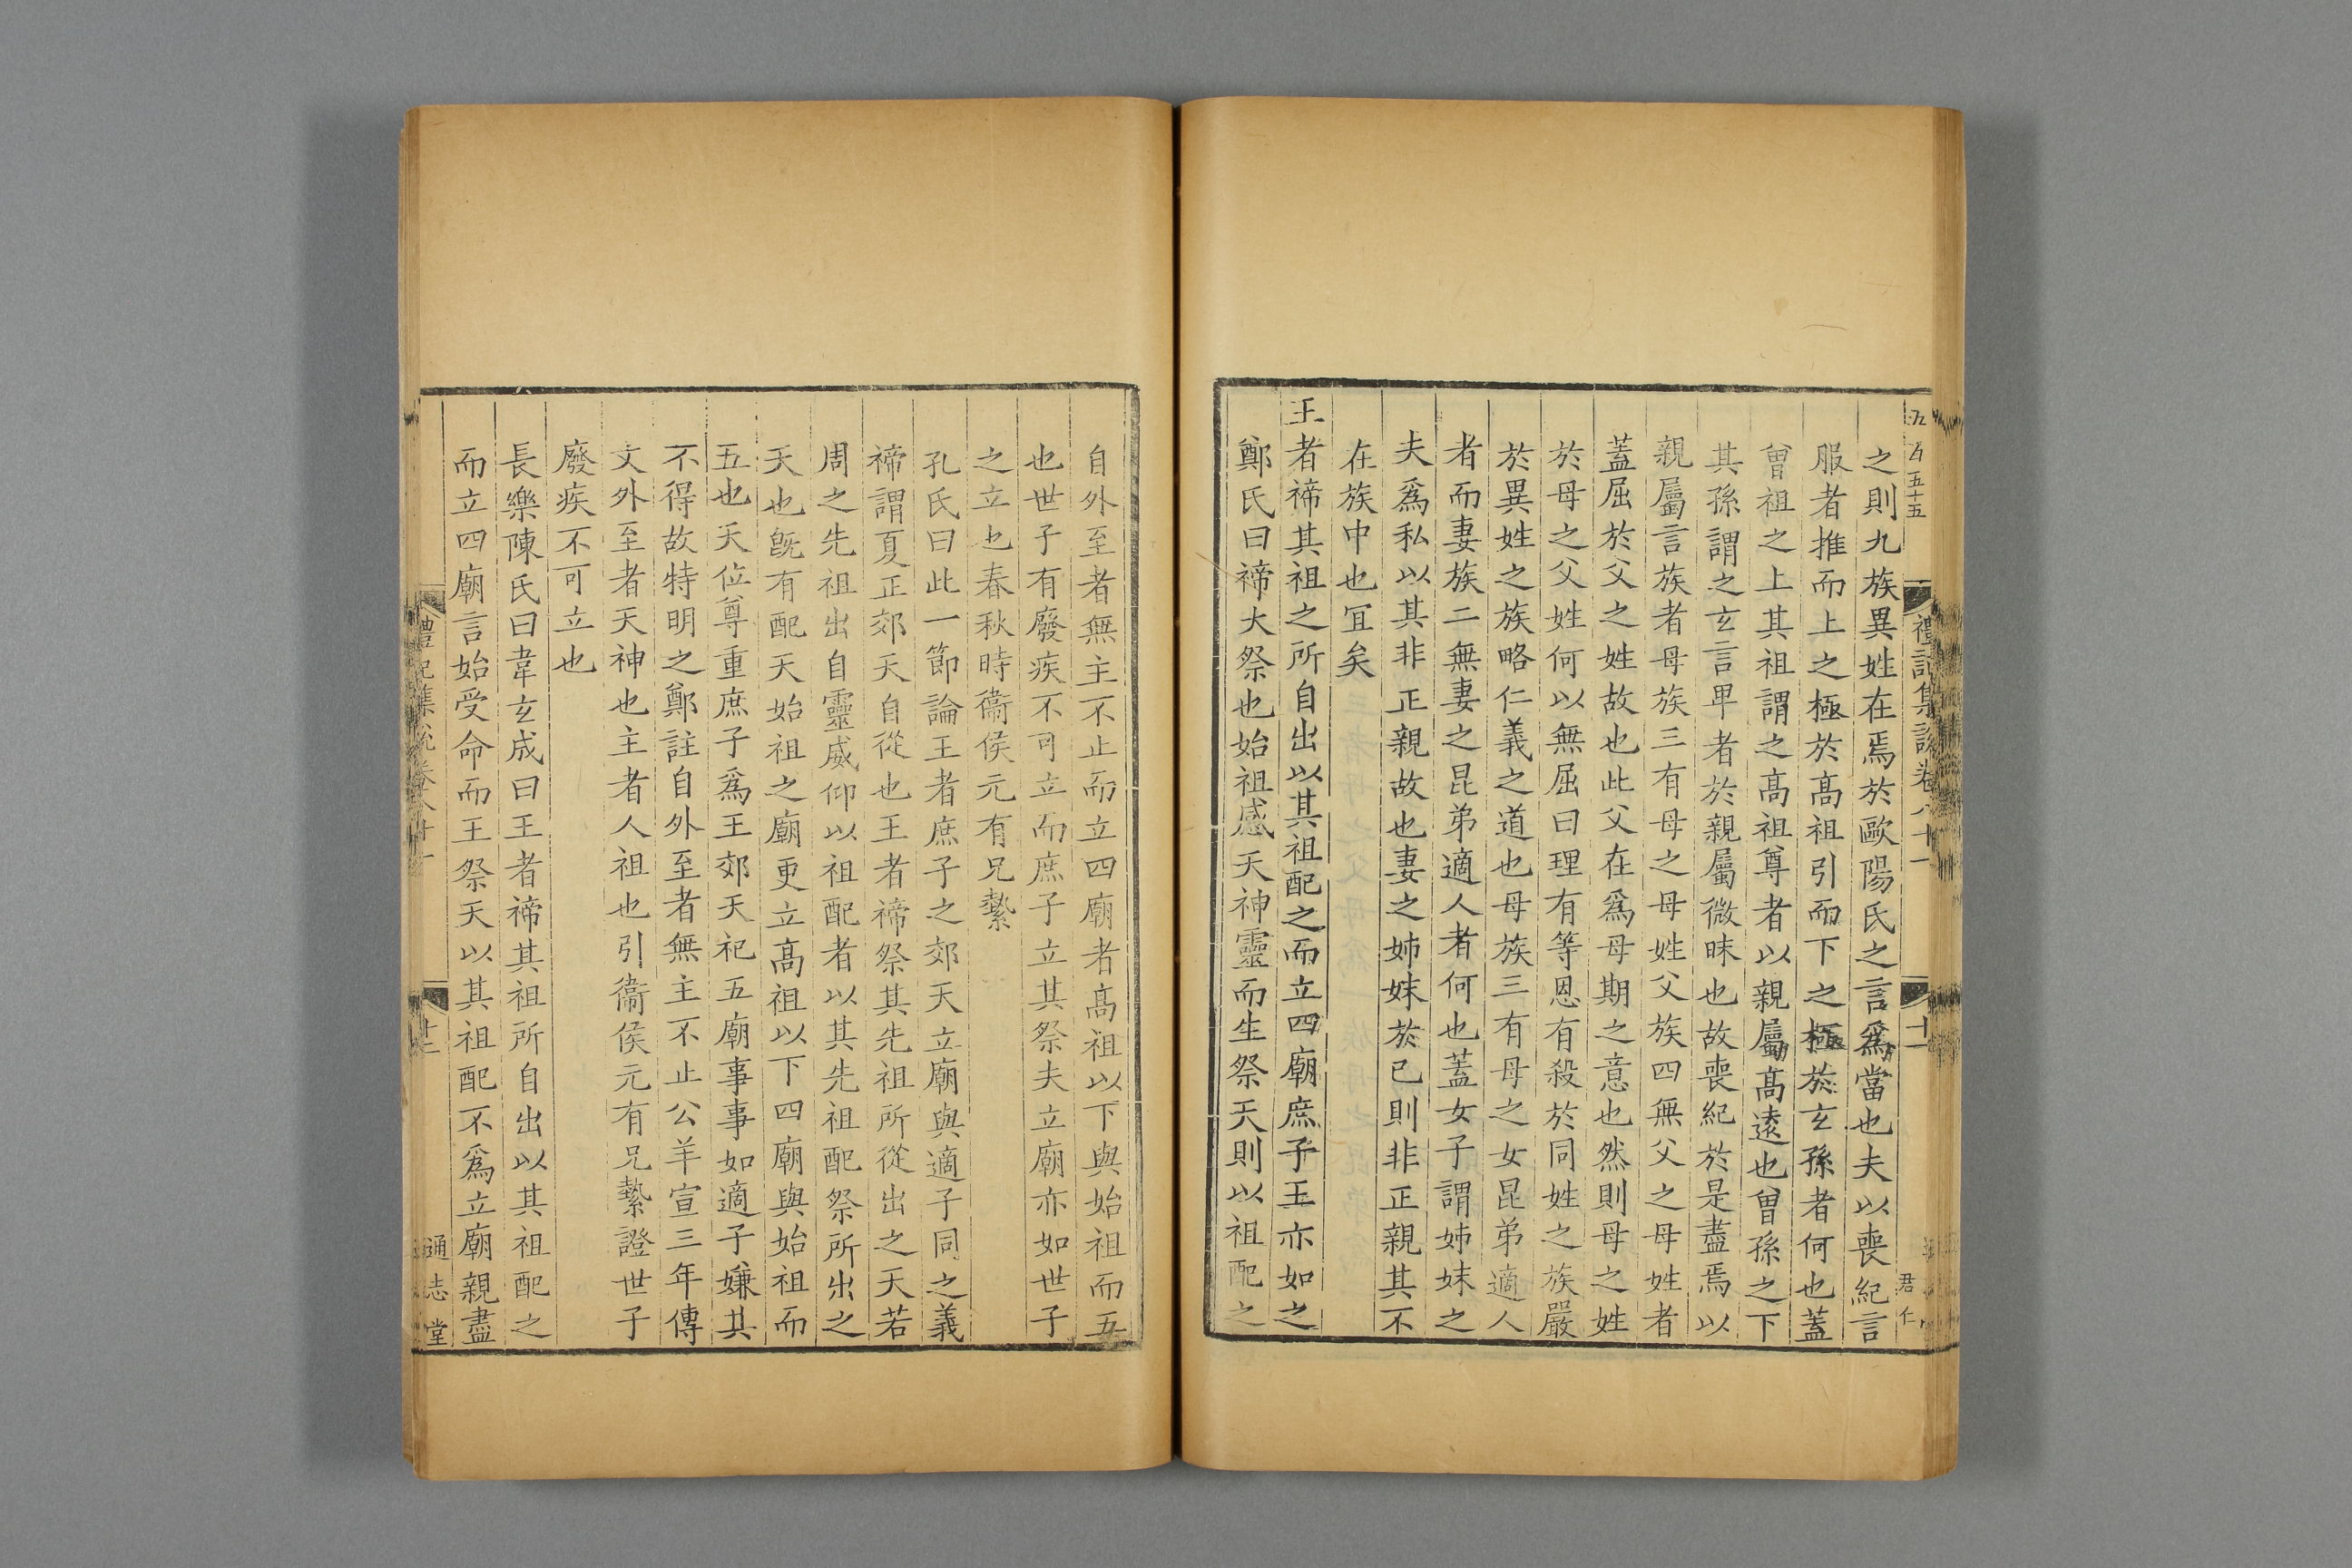 五百五十五
禮記集說卷八十一
十二
君仁
之則九族異姓在焉於歐陽氏之言爲當也夫以喪紀言
服者推而上之極於髙祖引而下之極於玄孫者何也蓋
曾祖之上其祖謂之髙祖尊者以親屬髙逺也曾孫之下
其孫謂之玄言卑者於親屬微昧也故喪紀於是盡焉以
親屬言族者母族三有母之母姓父族四無父之母姓者
蓋屈於父之姓故也此父在爲母期之意也然則母之姓
於母之父姓何以無屈曰理有等恩有殺於同姓之族嚴
於異姓之族略仁義之道也母族三有母之女昆弟適人
者而妻族二無妻之昆弟適人者何也蓋女子謂姊妹之
夫爲私以其非正親故也妻之姊妹於已則非正親其不
在族中也宜矣
王者禘其祖之所自出以其祖配之而立四廟庶子王亦如之
鄭氏曰禘大祭也始祖感天神靈而生祭天則以祖配之
自外至者無主不止而立四廟者髙祖以下與始祖而五
也世子有廢疾不可立而庶子立其祭夫立廟亦如世子
之立也春秋時衞侯元有兄縶
孔氏曰此一節論王者庶子之郊天立廟與適子同之義
禘謂夏正郊天自從也王者禘祭其先祖所從出之天若
周之先祖出自靈威仰以祖配者以其先祖配祭所出之
天也旣有配天始祖之廟更立髙祖以下四廟與始祖而
五也天位尊重庶子爲王郊天祀五廟事事如適子嫌其
不得故特明之鄭註自外至者無主不止公羊宣三年傳
文外至者天神也主者人祖也引衞侯元有兄縶證世子
廢疾不可立也
長樂陳氏曰韋玄成曰王者禘其祖所自出以其祖配之
而立四廟言始受命而王祭天以其祖配不爲立廟親盡
禮記集說卷八十一
十二
通志堂